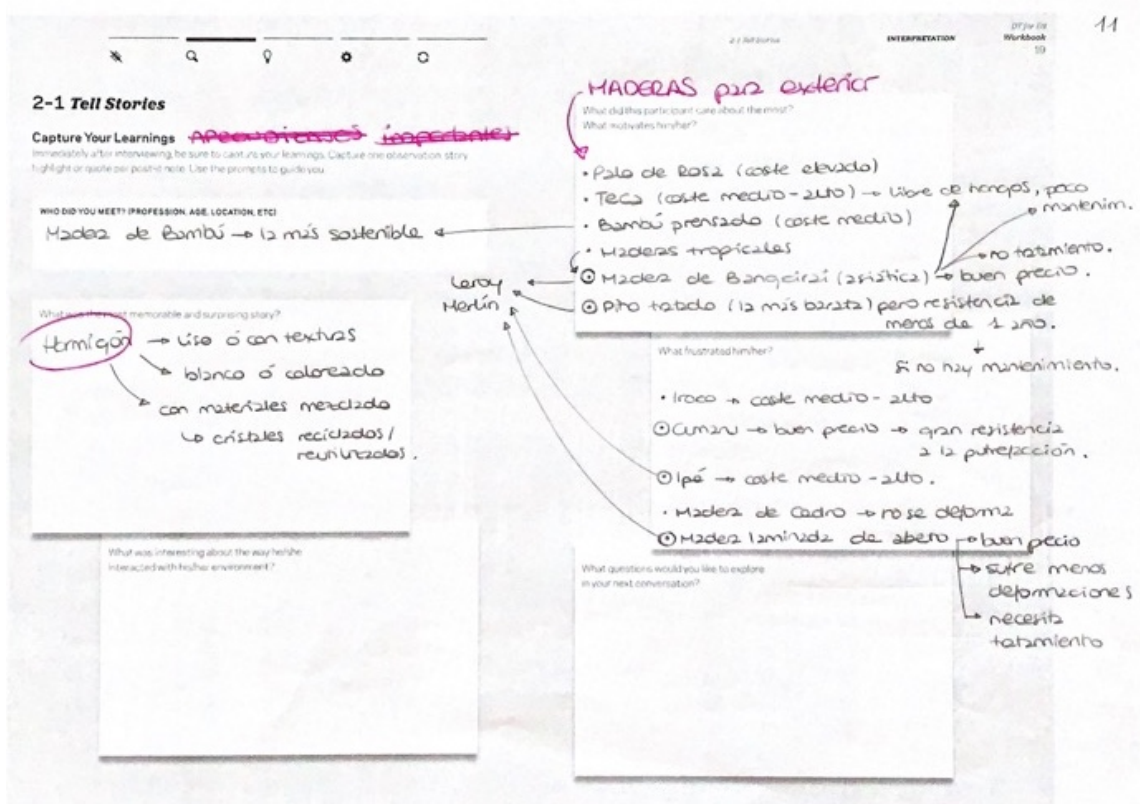 11
2-1 Tell Stories
INTERPRETATION
DT for Ed
Workbook
19
2-1 Tell Stories
Capture Your Learnings Aprendizajes importantes
Immediately after interviewing, be sure to capture your learnings. Capture one observation story
highlight or quote per post-it note. Use the prompts to guide you
WHO DID YOU MEET? (PROFESSION, AGE, LOCATION, ETC)
Madera de Bambú → la más sostenible
What was the most memorable and surprising story?
Hormigón → liso ó con texturas
blanco ó coloreado
con materiales mezclado
↳ cristales reciclados/
reutilizados.
What was interesting about the way he/she
interacted with his/her environment?
MADERAS para exterior
What did this participant care about the most?
What motivates him/her?
• Palo de Rosa (coste elevado)
• Teca (coste medio-alto) → libre de hongos, poco
mantenim.
• Bambú prensado (coste medio)
• Maderas tropicales
no tratamiento.
Madera de Bangcirai (asiática) → buen precio.
Leroy
Merlín
Pino tratado (la más barata) pero resistencia de
menos de 1 año.
↓
si no hay mantenimiento.
What frustrated him/her?
• Iroco → coste medio-alto
Cumaru → buen precio → gran resistencia
a la putrefacción.
Ipé → coste medio-alto.
• Madera de Cedro → no se deforma
Madera laminada de abeto → buen pecio
→ sufre menos
deformaciones
→ necesita
tratamiento
What questions would you like to explore
in your next conversation?